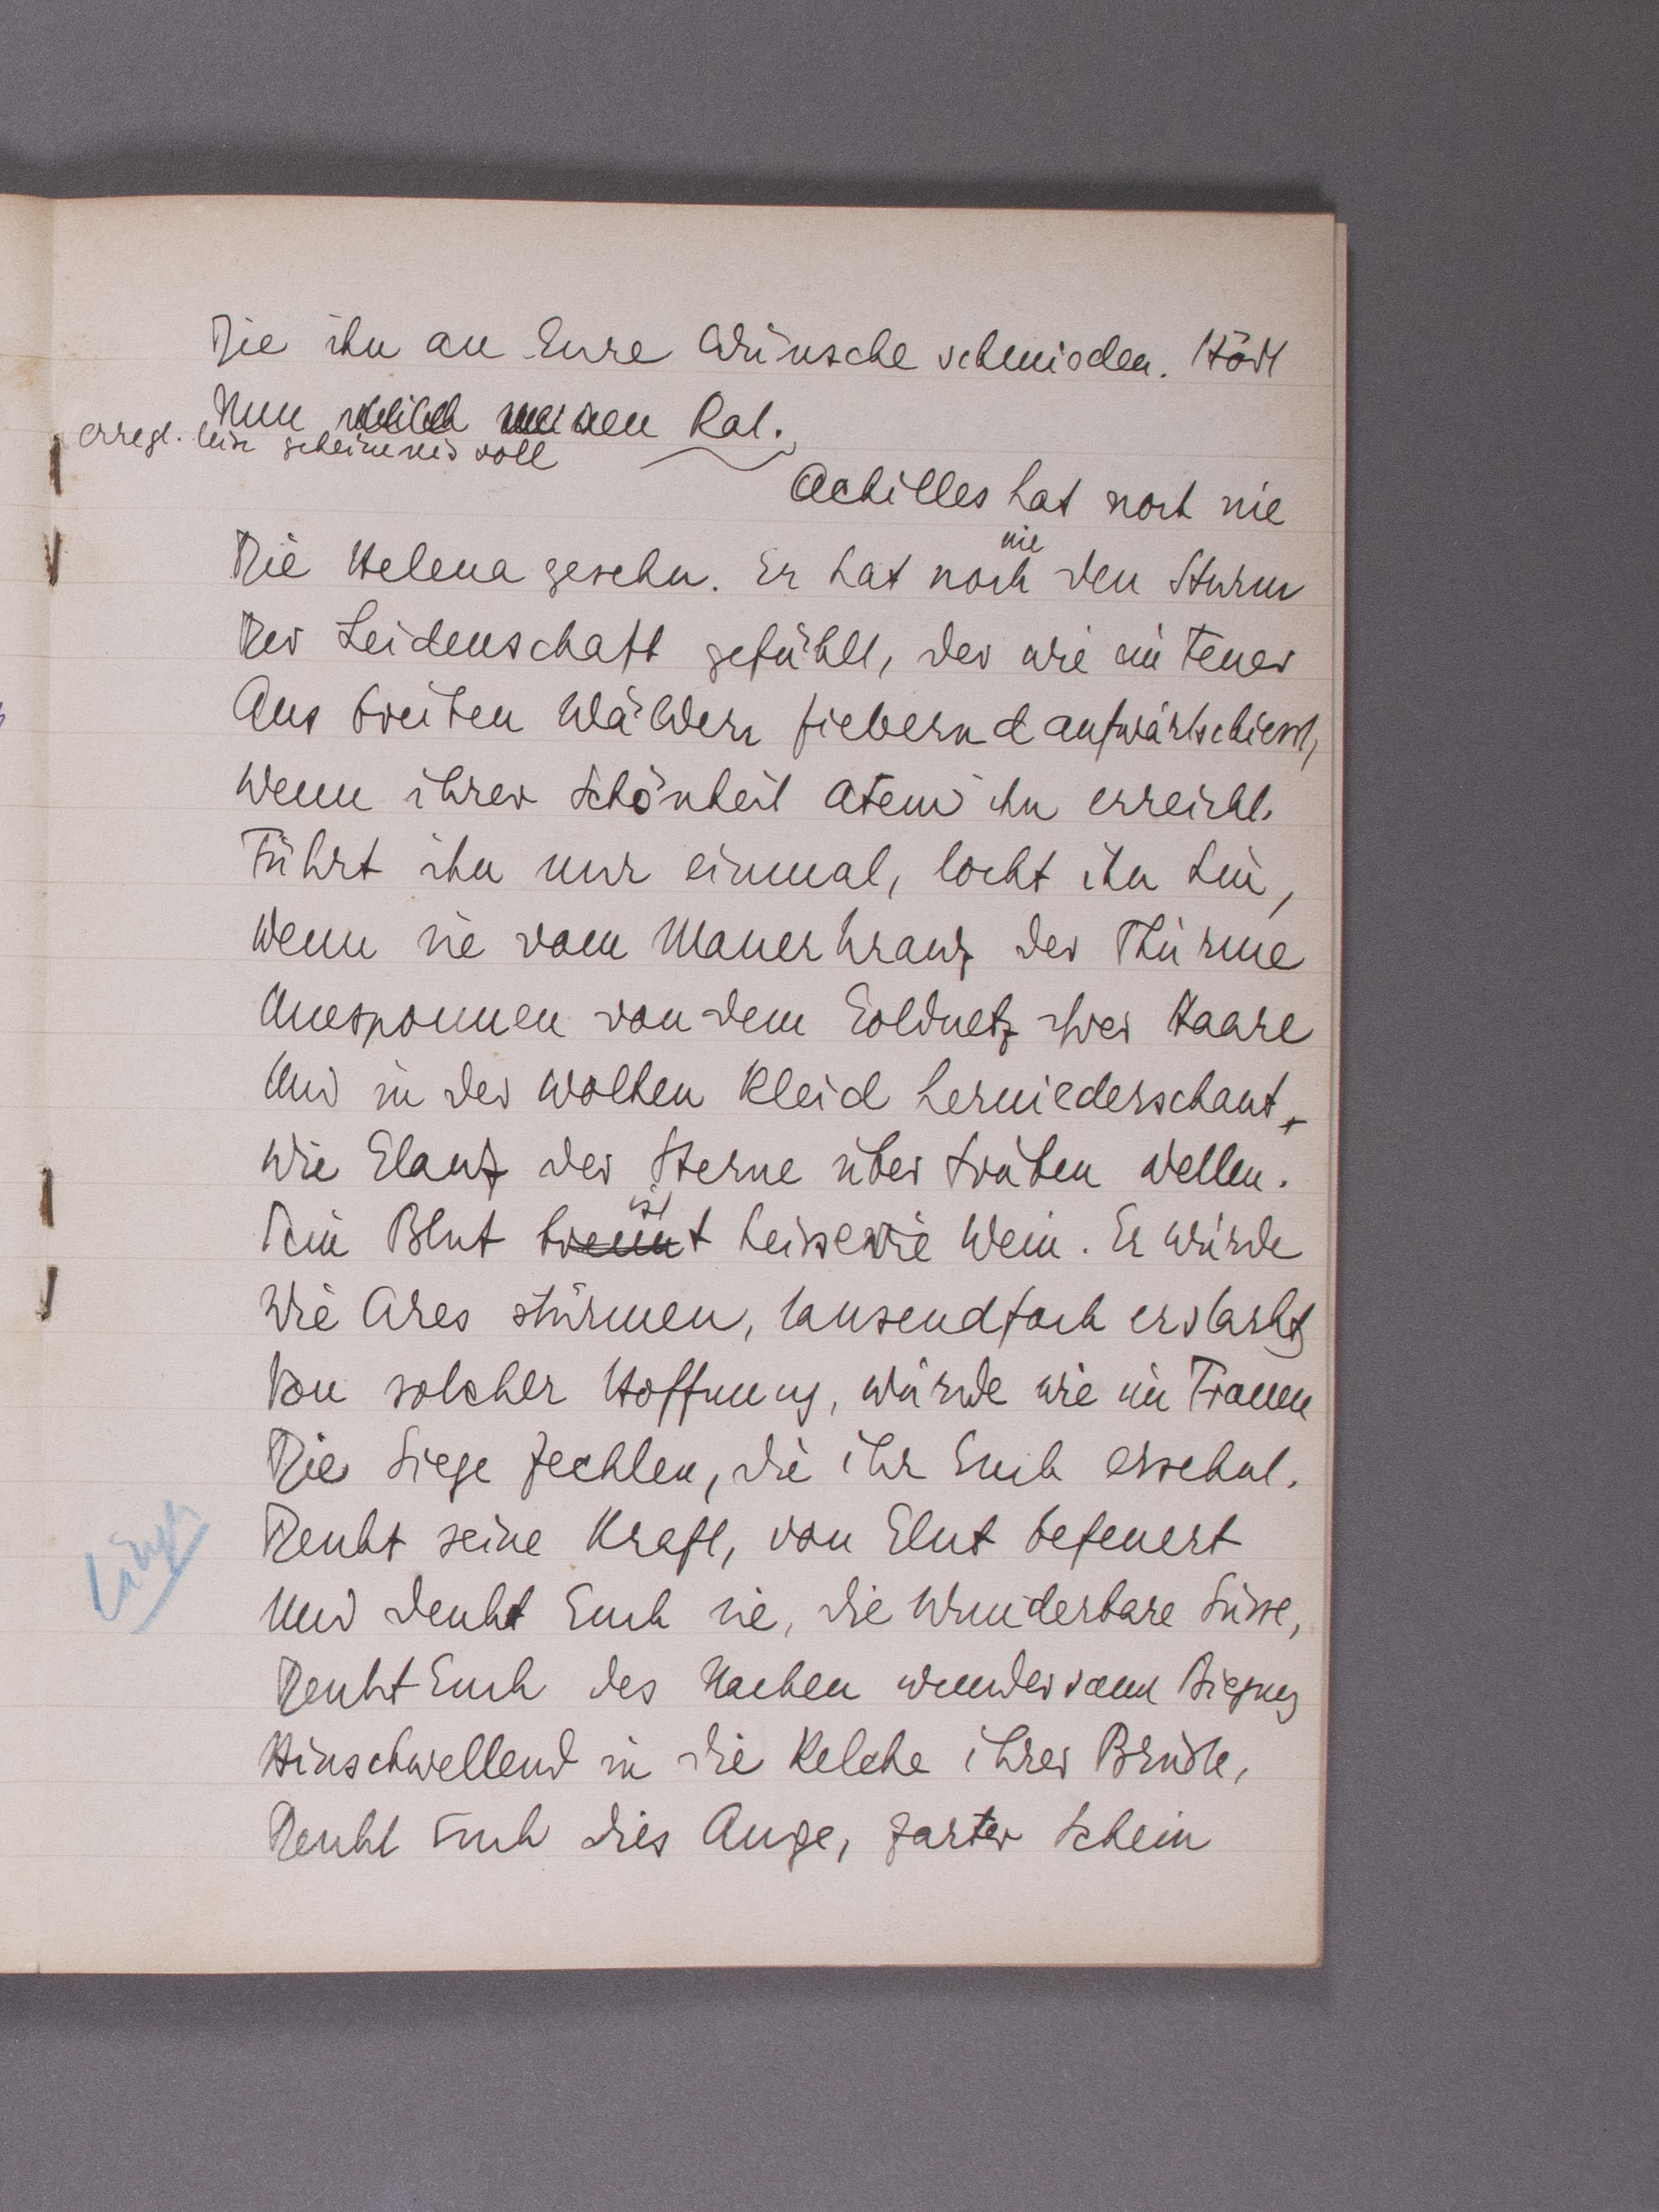 Die ihn an Eure Wünsche schmieden. Hört
Nun meinen Rat.
erregt. leise geheimnisvoll
Achilles hat noch nie
nie
Die Helena gesehn. Er hat noch den Sturm
Der Leidenschaft gefühlt, der wie ein Feuer
Aus breiten Wäldern fiebernd aufwärtschiesst,
Wenn ihrer Schönheit Atem ihn erreicht.
Führt ihn nur einmal, lockt ihn hin,
Wenn sie vom Mauerkranz der Thürme
Umsponnen von dem Goldnetz ihrer Haare
Und in der Wolken Kleid herniederschaut,
Wie Glanz der Sterne über trüben Wellen.
ist
Sein Blut brennt heisse wie Wein. Er würde
Wie Ares stürmen, tausendfach erstarkt
Von solcher Hoffnung, würde wie im Traum
Die Siege fechten, die ihr Euch ersehnt.
Längs
Denkt seine Kraft, von Glut befeuert
Und denkt Euch sie, die wunderbare Süsse,
Denkt Euch des Nacken wundersam Biegung
Hinschwellend in die Kelche ihrer Brüste,
Denkt Euch dies Auge, zarter Schein